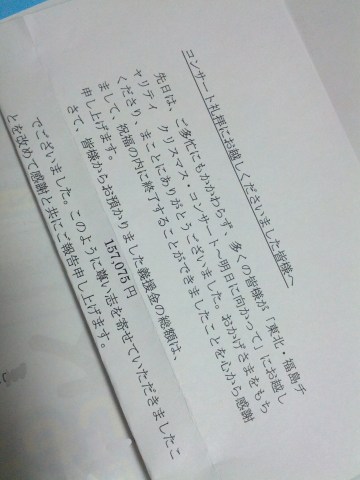 コンサート礼拝にお越しくださいました皆様へ
先日は、ご多忙にもかかわらず、多くの皆様が「東北・福島チ
ャリティ クリスマス・コンサート～明日に向かって」にお越し
くださり、まことにありがとうございました。おかげさまをもち
まして、祝福の内に終了することができましたことを心から感謝
申し上げます。
さて、皆様からお預かりました義援金の総額は、
157,075円
でございました。このように尊い志を寄せていただきましたこ
とを改めて感謝と共にご報告申し上げます。